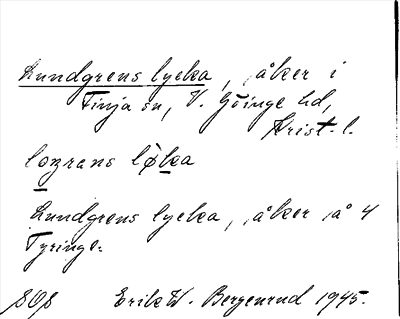 Lundgrens lycka, åker i
Finja sn, V. Göinge hd,
Krist. l.
lozrans løka
Lundgrens lycka, åker å 4
Tyringe.
SOS Erik W. Bergenrud 1945.